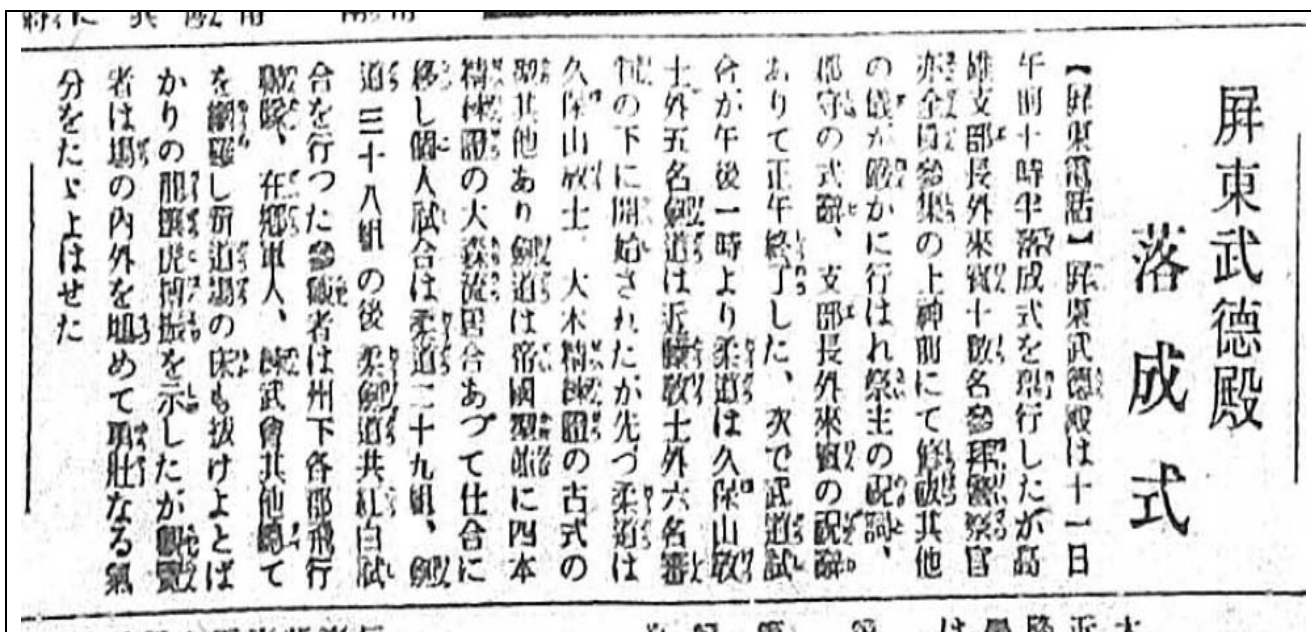 屏東武德殿
落成式
【屏東電話】屏東武德殿は十一日
午前十時半落成式を擧行したが高
雄支部長外來賓十數名參拜警察官
亦全員參集の上神前にて修祓其他
の儀が嚴かに行はれ祭主の祝詞、
郡守の式辭、支部長外來賓の祝辭
ありて正午終了した、次で武道試
合が午後一時より柔道は久保山敎
士外五名劍道は近藤敎士外六名審
判の下に開始されたが先づ柔道は
久保山敎士、大木精錬證の古式の
型其他あり劍道は帝國型並に四本
精錬證の大森流居合あつて仕合に
移し個人試合は柔道二十九組、劍
道三十八組の後柔劍道共紅白試
合を行つた參加者は州下各郡飛行
聯隊、在鄕軍人、錬武會其他總て
を網羅し新道場の床も拔けよとば
かりの龍驤虎搏振を示したが觀覽
者は場の內外を埋めて頗壯なる氣
分をたゞよはせた